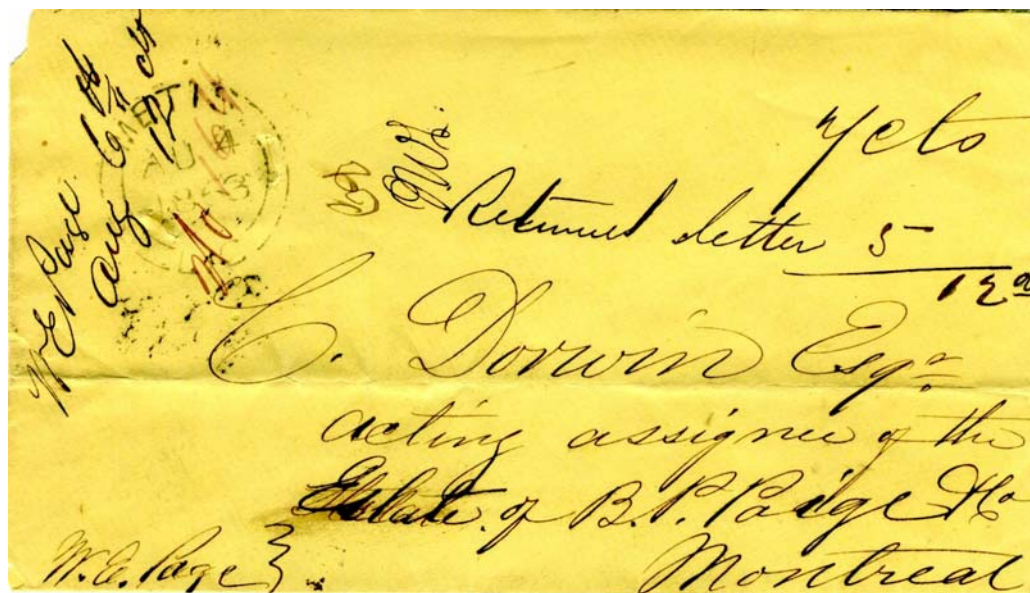 W E Page
Aug
AU 4
7 cts
Returned letter 5
12
C. Dorwin Esqr
acting assignee of the
Estate of B. P. Paige & Co
Montreal
W. E. Page